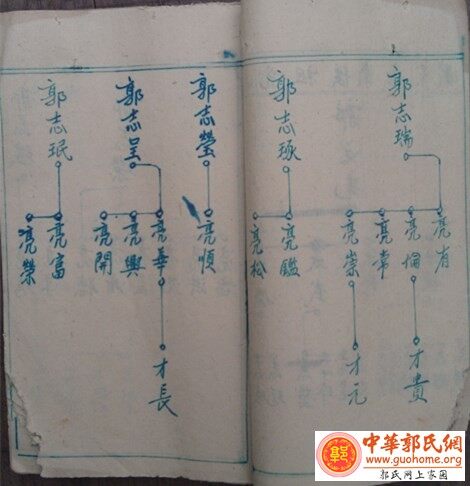 郭志瑞
亮有
亮
亮常
亮崇
才貴
才元
郭志琢
亮鑑
亮松
郭志瑩
亮順
郭志呈
亮華
亮興
亮開
才長
郭志珉
亮富
亮榮
中華郭氏網
www.guohome.org
郭氏网上家園